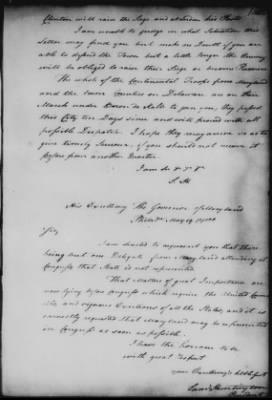 Clinton will raise the Siege and return his Posts
I am unable to judge in what Situation this
Letter may find you but make no Doubt if you are
able to defend the Town but a little longer the Enemy
will be obliged to raise their Siege or
The whole of the Continental Troops from Maryland
and the lower Counties on Delaware are on their
March under Baron de Kalb to join you, they passed
this City ten Days since and will proceed with all
possible Dispatch. I hope they may arrive so as to
give timely Succour, if you should not receive it
before from another Quarter.
I am &c
S. H.
His Excellency The Governor of Maryland
Philada May 19 1780
Sir,
I am directed to represent you that there
being but one Delegate from Maryland attending at
Congress that State is not represented
That Matters of great Importance are
now lying before Congress which require the United Coun-
cils, and vigorous Exertions of all the States, and it is
earnestly requested that Maryland may be represented
in Congress as soon as possible.
I have the honour to be
with great respect
your Excellency's
Saml Huntington